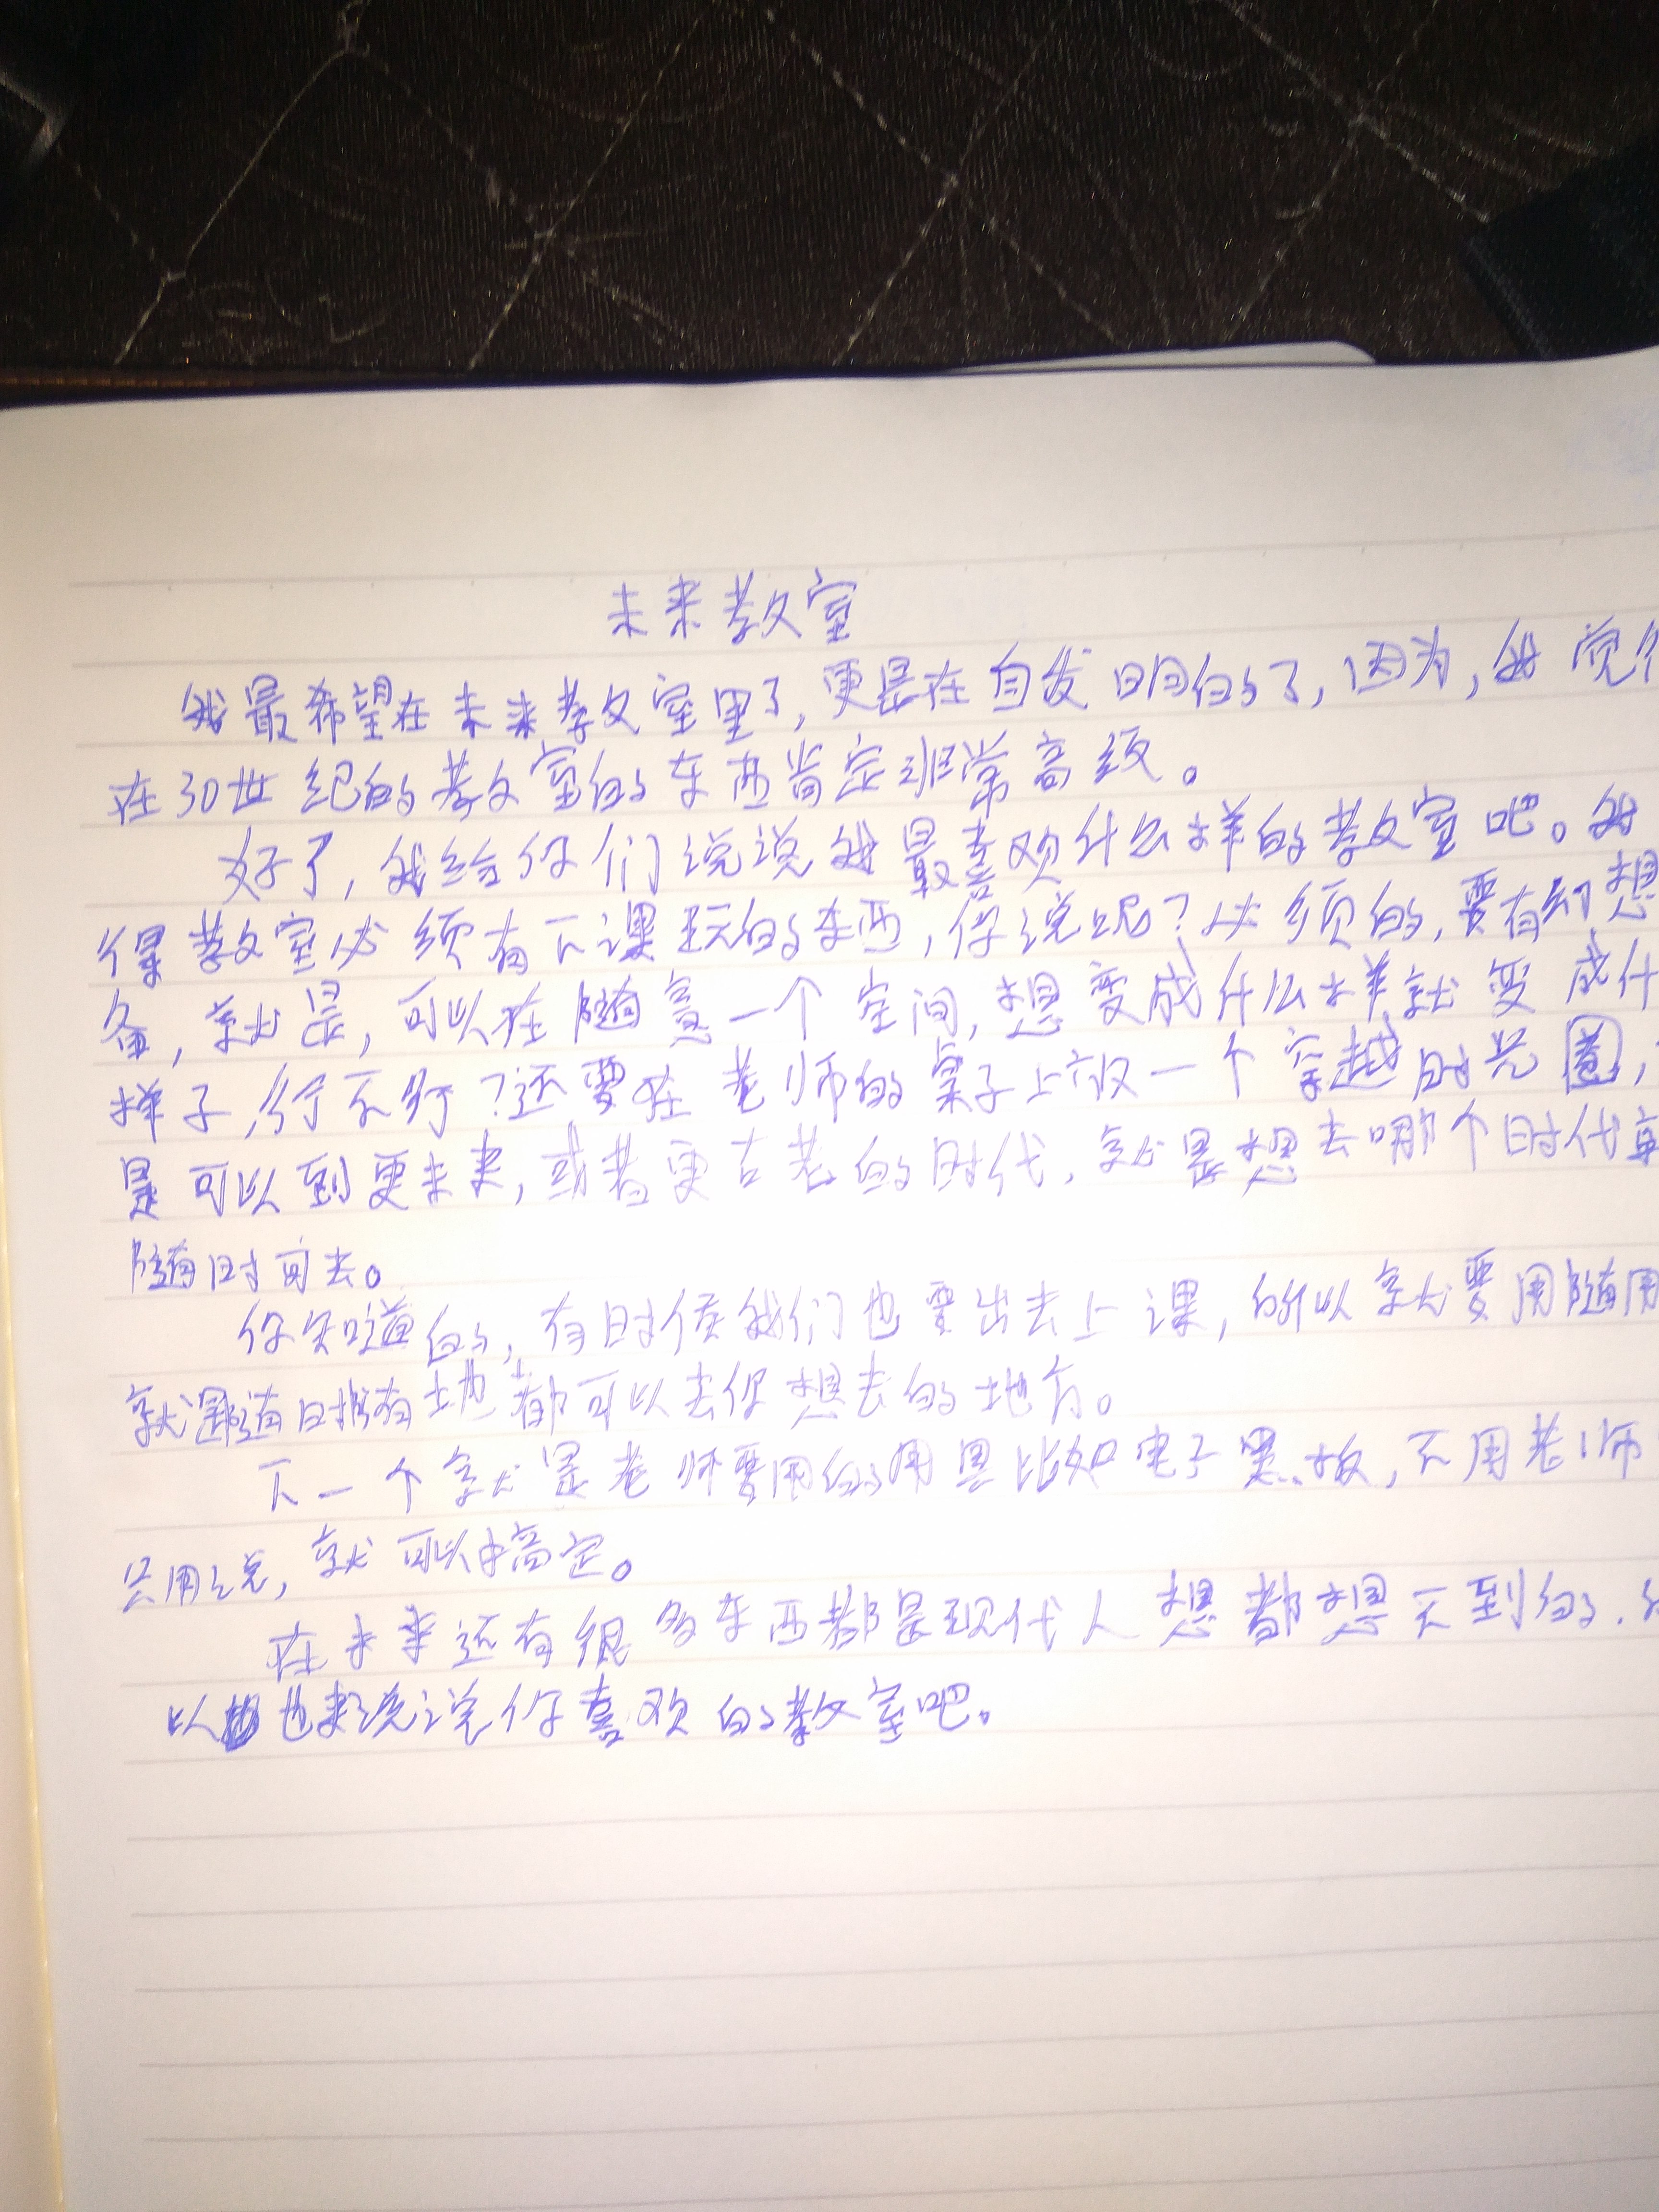 未来教室
我最希望在未来教室里了，更是在自发明的了，因为，我觉
在30世纪的教室的东西肯定非常高级。
好了，我给你们说说我最喜欢什么样的教室吧。我
得教室必须有下课玩的东西，你说呢？必须的，要有幻想
备，就是，可以在随意一个空间，想变成什么样就变成什
样子，行不行？还要在老师的桌子上放一个穿越时光圈，
是可以到更未来，或者更古老的时代，就是想去哪个时代
随时可去。
你知道的，有时候我们也要出去上课，所以就要用随用
就是随时随地都可以去你想去的地方。
下一个就是老师要用的用具比如电子黑板，不用老师
只用说，就可以搞定。
在未来还有很多东西都是现代人想都想不到的.
以也来说说你喜欢的教室吧。